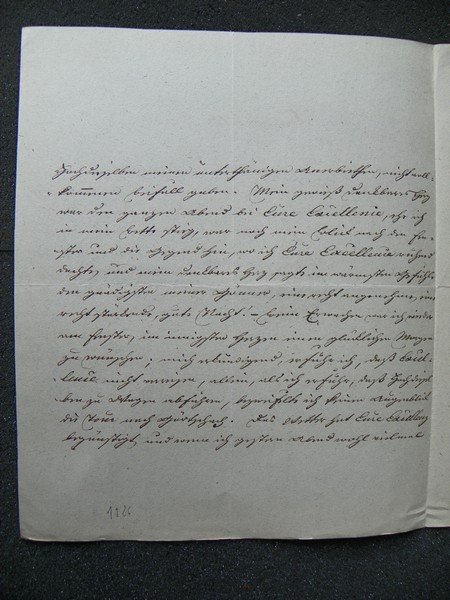 Hochdieselben meinen unterthänigen Anerbiethen, nicht voll-
kommenen Beifall gaben. Mein gewiß dankbares Herz
war den ganzen Abend bei Eure Excellenie, ehe ich
in mein Bette stieg, war noch mein Blick nach den Fen-
ster und die Gegend hin, wo ich Eure Excellenie
dachte, und mein dankbares Herz sagte im wärmsten Gefühle
den gnädigsten meiner Gönner, eine recht angenehme, eine
recht stärkende, gute Nacht! – Beim Erwachen war ich wieder
am Fenster, im innigsten Herzen einen glücklichen Morgen
zu wünschen; mich erkundigend, erfuhr ich, daß Excel-
lenie nicht verreisen, allein, als ich erfuhr, daß Hochdiesel-
ben zu Wagen abführen, bezweifelte ich keinen Augenblick
die Tour nach Görtschach. Das Wetter hat Eure Excellenz
begünstigt, und wenn ich gestern Abend wohl vielmal
1826